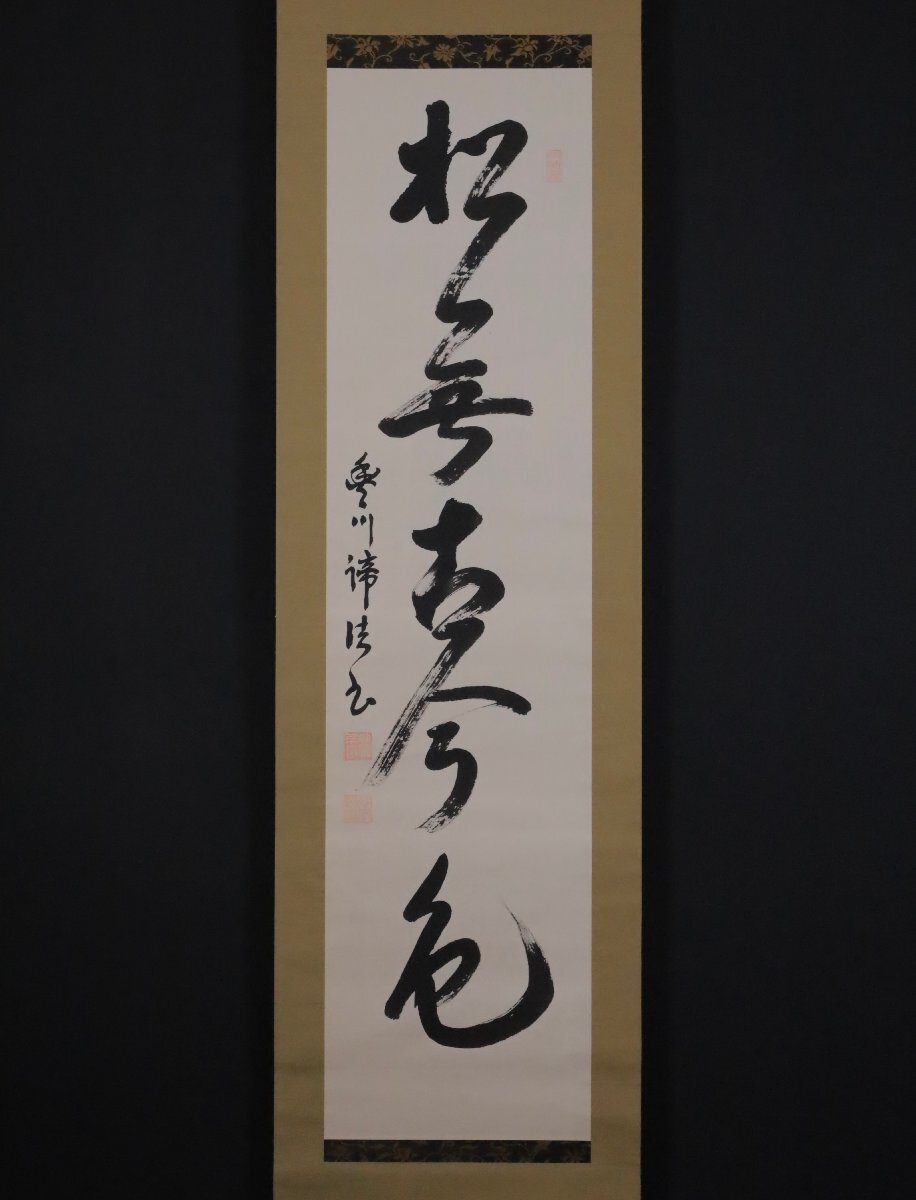 松無古今色
豊川諦法書